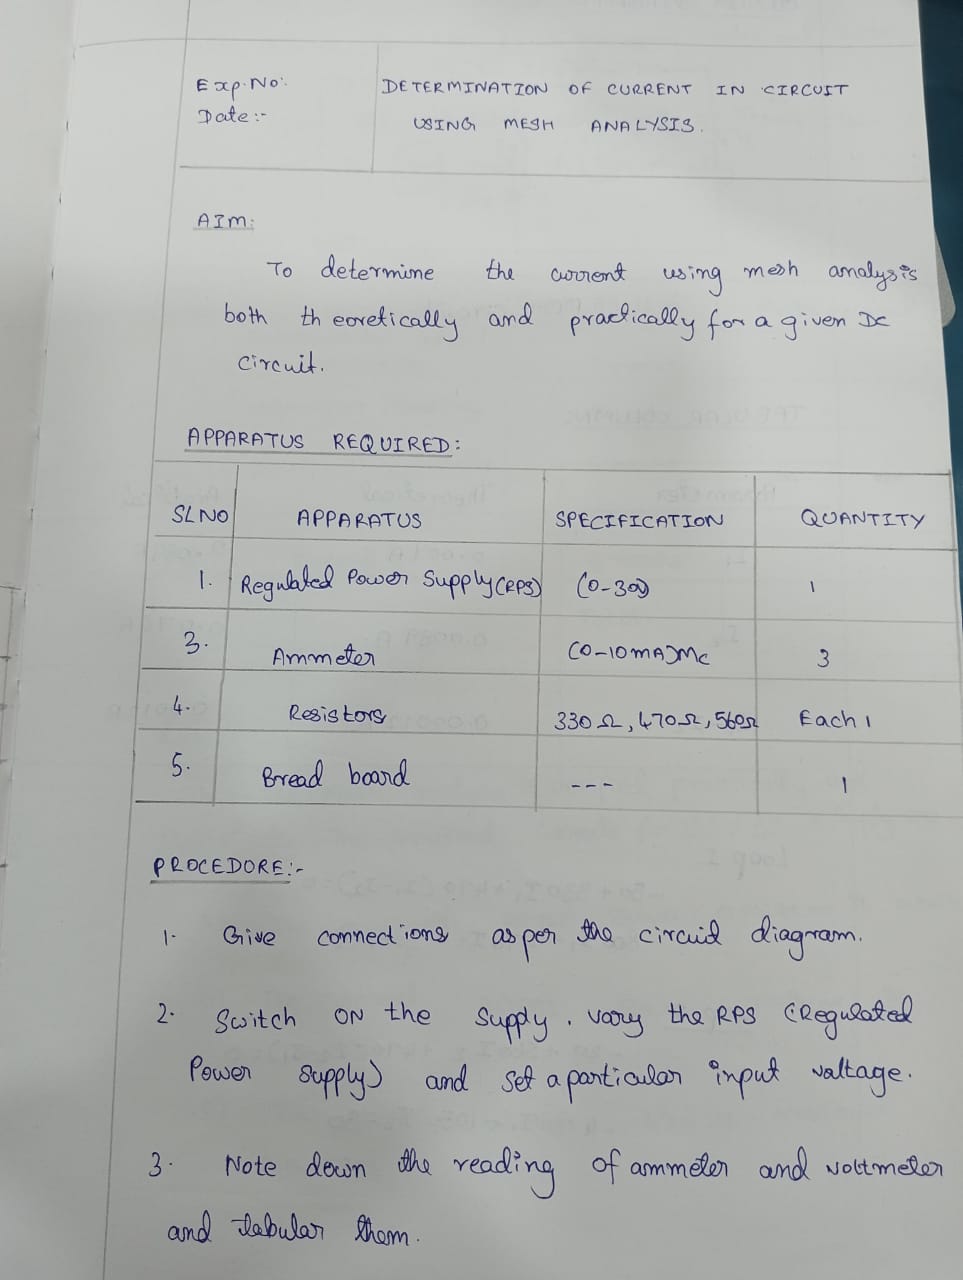 Exp. No:
Date :-
DETERMINATION OF CURRENT IN CIRCUIT
USING MESH ANALYSIS.
AIM:
To determine the current using mesh analysis
both theoretically and practically for a given DC
circuit.
APPARATUS REQUIRED:
SL NO APPARATUS SPECIFICATION QUANTITY
1. Regulated Power Supply (RPS) (0-30V) 1
3. Ammeter (0-10mA)MC 3
4. Resistors 330Ω, 470Ω, 560Ω Each 1
5. Bread board --- 1
PROCEDORE:-
1. Give connections as per the circuid diagram.
2. Switch ON the Supply. Vary the RPS (Regulated
Power Supply) and set a particular input valtage.
3. Note down the reading of ammeter and voltmeter
and tabular them.